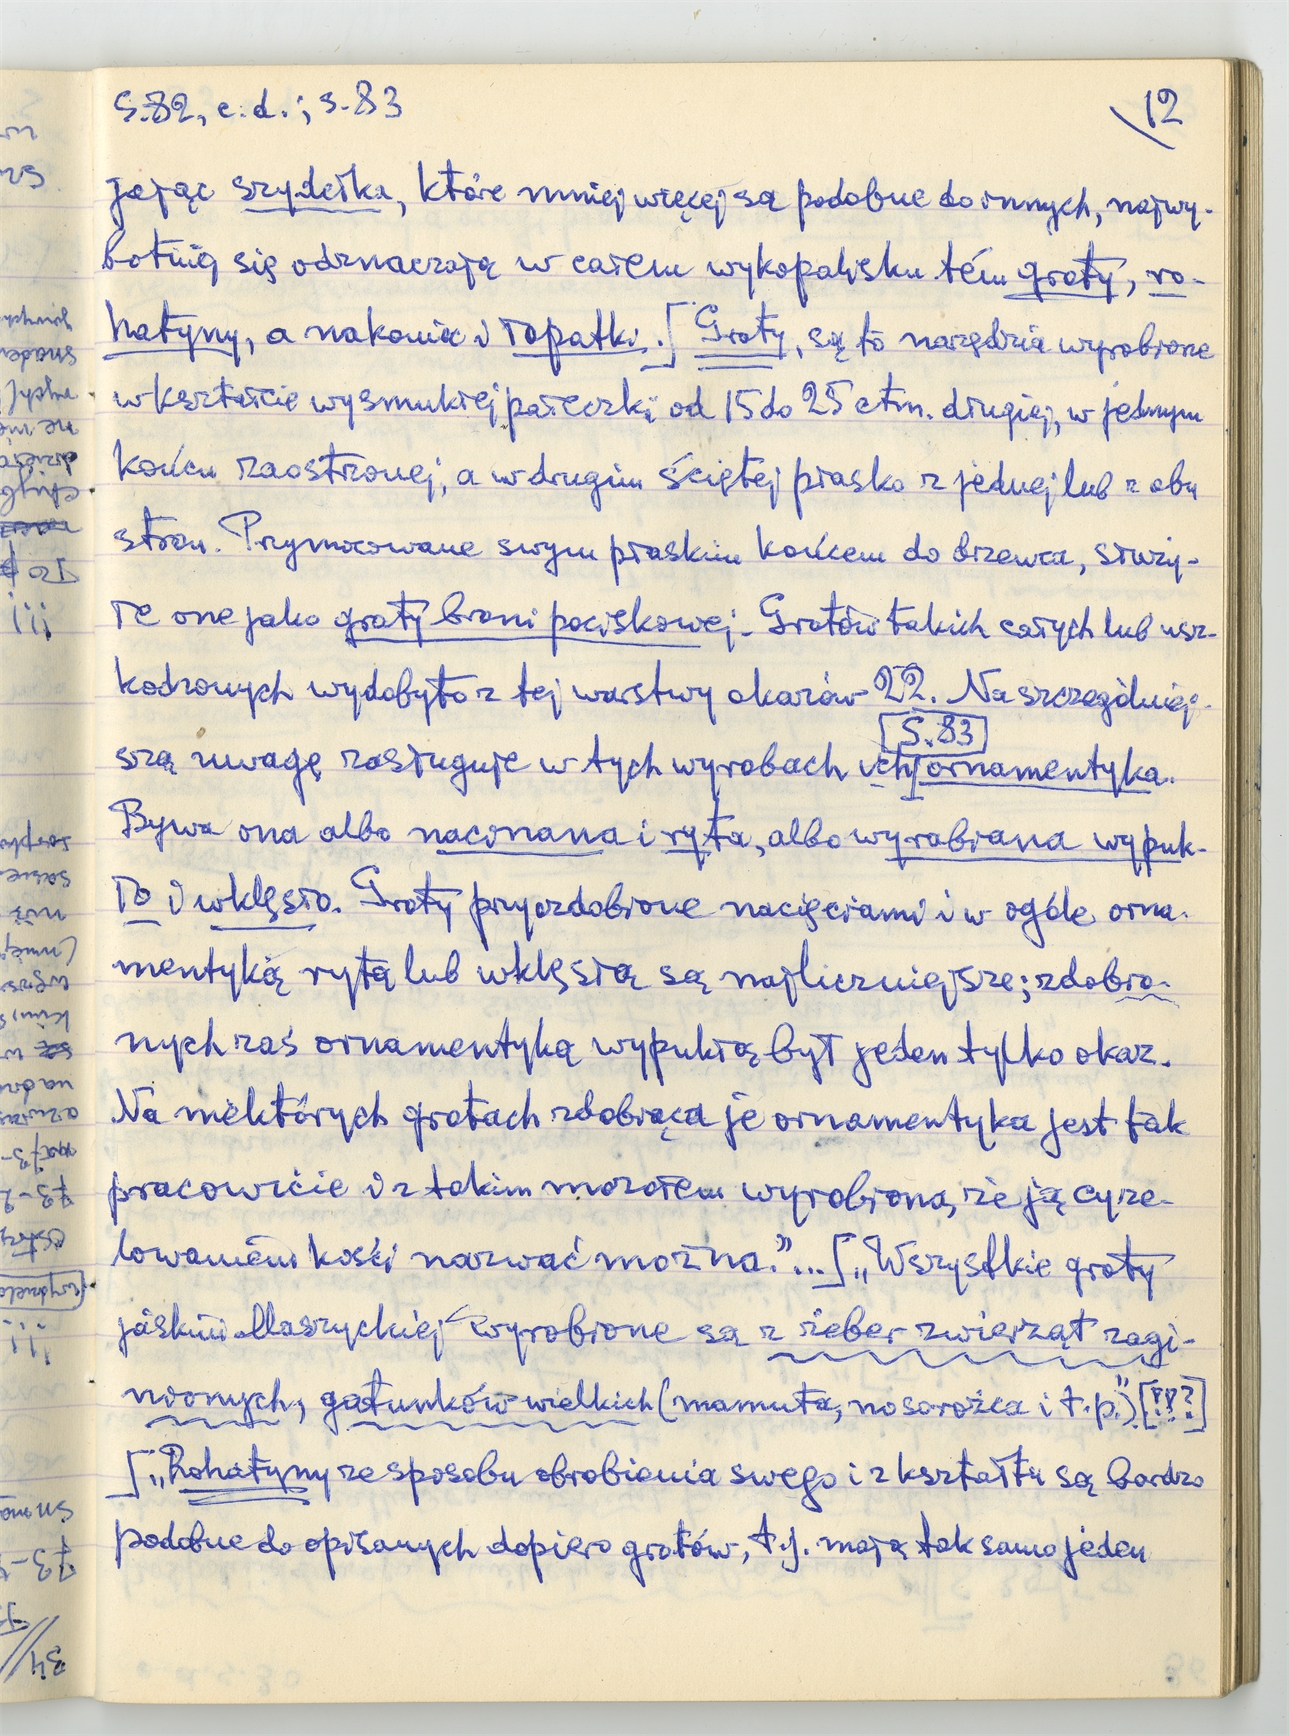 S.82, c.d.; s.83
12
jając szydełka, które mniej więcej są podobne do innych, najwy-
botniej się odznaczają w całem wykopalisku tém groty, ro-
hatyny, a nakoniec i łopatki.] Groty, są to narzędzia wyrobione
w kształcie wysmukłej pałeczki od 15 do 25 ctm. długiej, w jednym
końcu zaostrzonej, a w drugim ściętej płasko z jednej lub z obu
stron. Przymocowane swym płaskim końcem do drzewca, służy-
łe one jako groty broni pociskowej. Grotów takich całych lub usz-
kodzonych wydobyto z tej warstwy okazów 22. Na szczególniej-
S.83
szą uwagę zasługuje w tych wyrobach ich] ornamentyka.
Bywa ona albo nacinana i ryta, albo wyrabiana wypuk-
ło i wklęsło. Groty przyozdobione nacięciami i w ogóle orna-
mentyką rytą lub wklęsłą są najliczniejsze; zdobio-
nych zaś ornamentyką wypukłą był jeden tylko okaz.
Na niektórych grotach zdobiąca je ornamentyka jest tak
pracowicie i z takim mozołem wyrobiona, że ją cyze-
lowaniem kości nazwać można."... ["Wszystkie groty
jaskini Maszyckiej wyrobione są z żeber zwierząt zagi-
nionych, gatunków wielkich (mamuta, nosorożca i t.p.") [!!?]
["Rohatyny ze sposobu obrobienia swego i z kształtu są bardzo
podobne do opisanych dopiero grotów, t.j. mają tak samo jeden